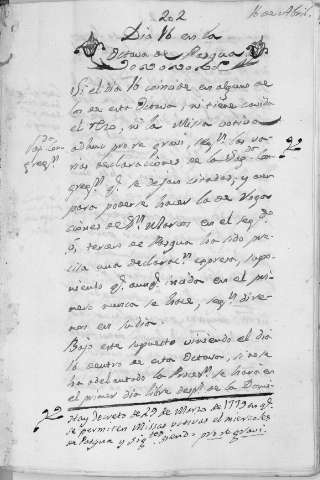 202
16 de Abril.
Dia 16 en la
Octava de Pasqua
Si el dia 16 coincide en alguno de
los de esta Octava, ni tiene cavida
el rezo, ni la Missa votiva
adhuc pro re gravi, segn. las va-
rias declaraciones de la Sag. Con
gregn. qe. se dejan citadas; y aun
para poderse hacer la de Rogaciones
de Sn. Marcos en el segdo.
ó tercero de Pasqua ha sido pre-
cisa una declaracn. expresa, supo-
niendo qe. aunqe. incida en el pri-
mero nunca se hace, segn. dire-
mos en su dia.
Bajo este supuesto viniendo el dia
16 dentro de esta Octava, si no se
ha adelantado la Procesn. se hará en
el primer dia libre desps. de la Domi-
Hay Decreto de 29 de Marzo de 1773 en qe.
se permiten Missas votivas el miercoles
de Pasqua y sigtes. siendo pro re gravi.